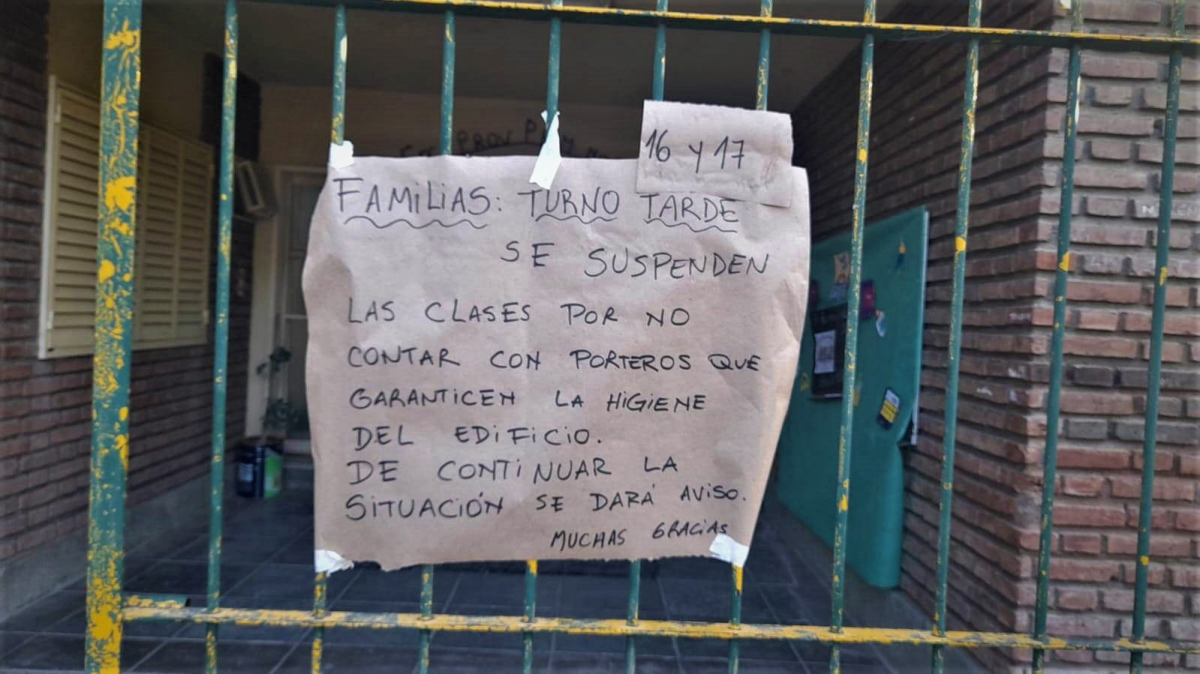 16 Y 17
FAMILIAS: TURNO TARDE
SE SUSPENDEN
LAS CLASES POR NO
CONTAR CON PORTEROS QUE
GARANTICEN LA HIGIENE
DEL EDIFICIO.
DE CONTINUAR LA
SITUACIÓN SE DARÁ AVISO.
MUCHAS GRACIAS